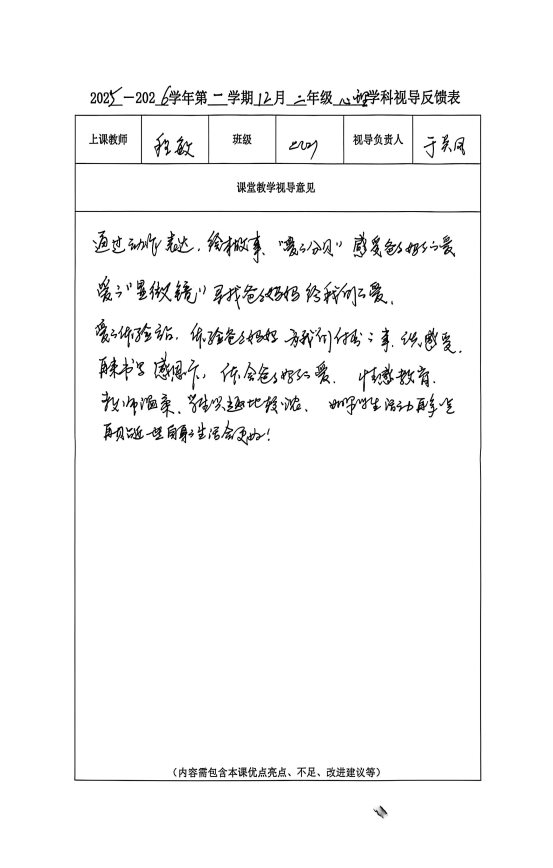 2025-2026学年第一学期12月二年级心理学科视导反馈表
上课教师 程敏 班级 2021 视导负责人
课堂教学视导意见
通过动作表达,绘本故事,“爱的分贝”感受爸爸妈妈的爱
爱的“显微镜”寻找爸爸妈妈给我们的爱。
爱的体验站,体验爸爸妈妈为我们付出的事,感受,
再来书写感恩卡,体会爸爸妈妈的爱。情感教育。
教师温柔、学生兴趣比较浓、如果学生活动再
再贴近一些自身的生活会更好!
(内容需包含本课优点亮点、不足、改进建议等)